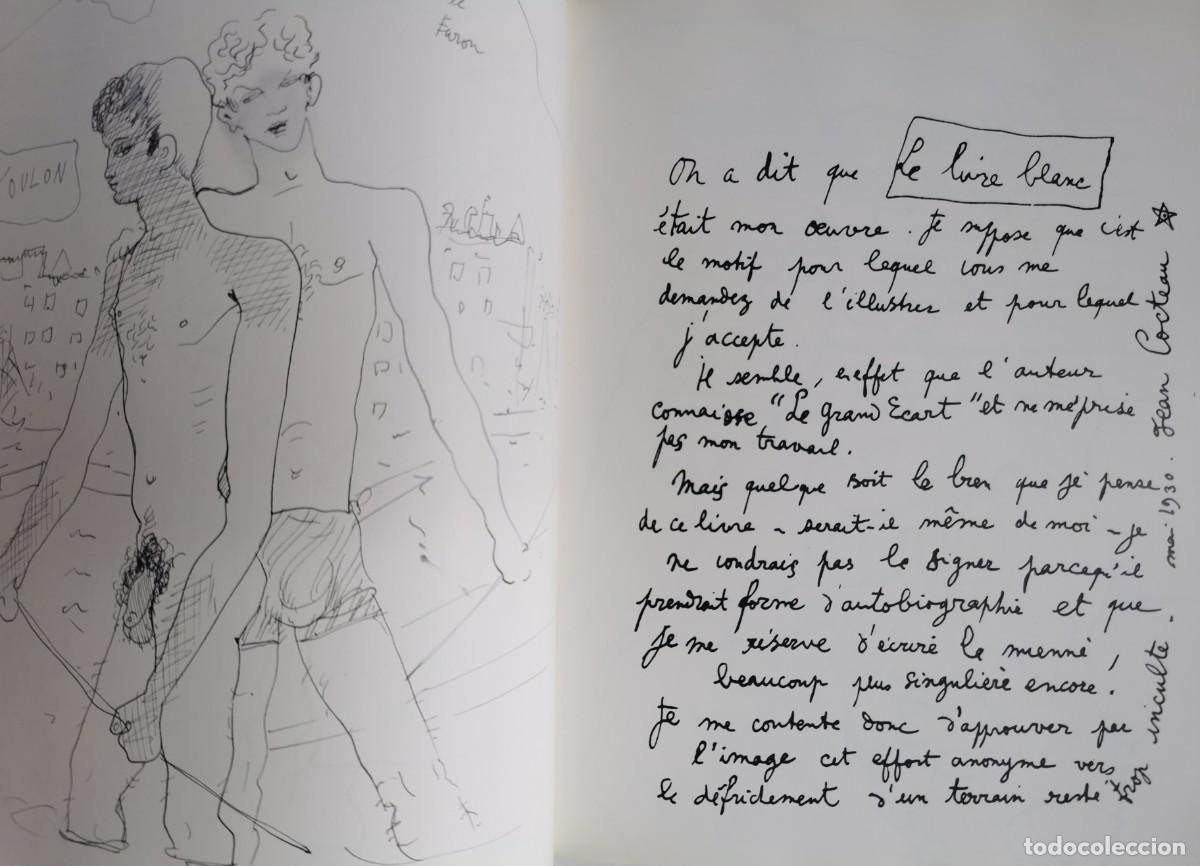 le
Faron
TOULON
On a dit que Le livre blanc
était mon oeuvre. Je suppose que c'est
le motif pour lequel vous me
demandez de l'illustrer et pour lequel
j'accepte.
Il semble, en effet que l'auteur
connaisse "Le Grand Ecart" et ne méprise
pas mon travail.
Mais quelque soit le bien que je pense
de ce livre - serait-il même de moi - je
ne voudrais pas le signer parcequ'il
prendrait forme d'autobiographie et que
je me réserve d'écrire la mienne,
beaucoup plus singulière encore.
Je me contente donc d'approuver par
l'image cet effort anonyme vers
le défrichement d'un terrain resté
trop inculte. mai 1930. Jean Cocteau
todocoleccion